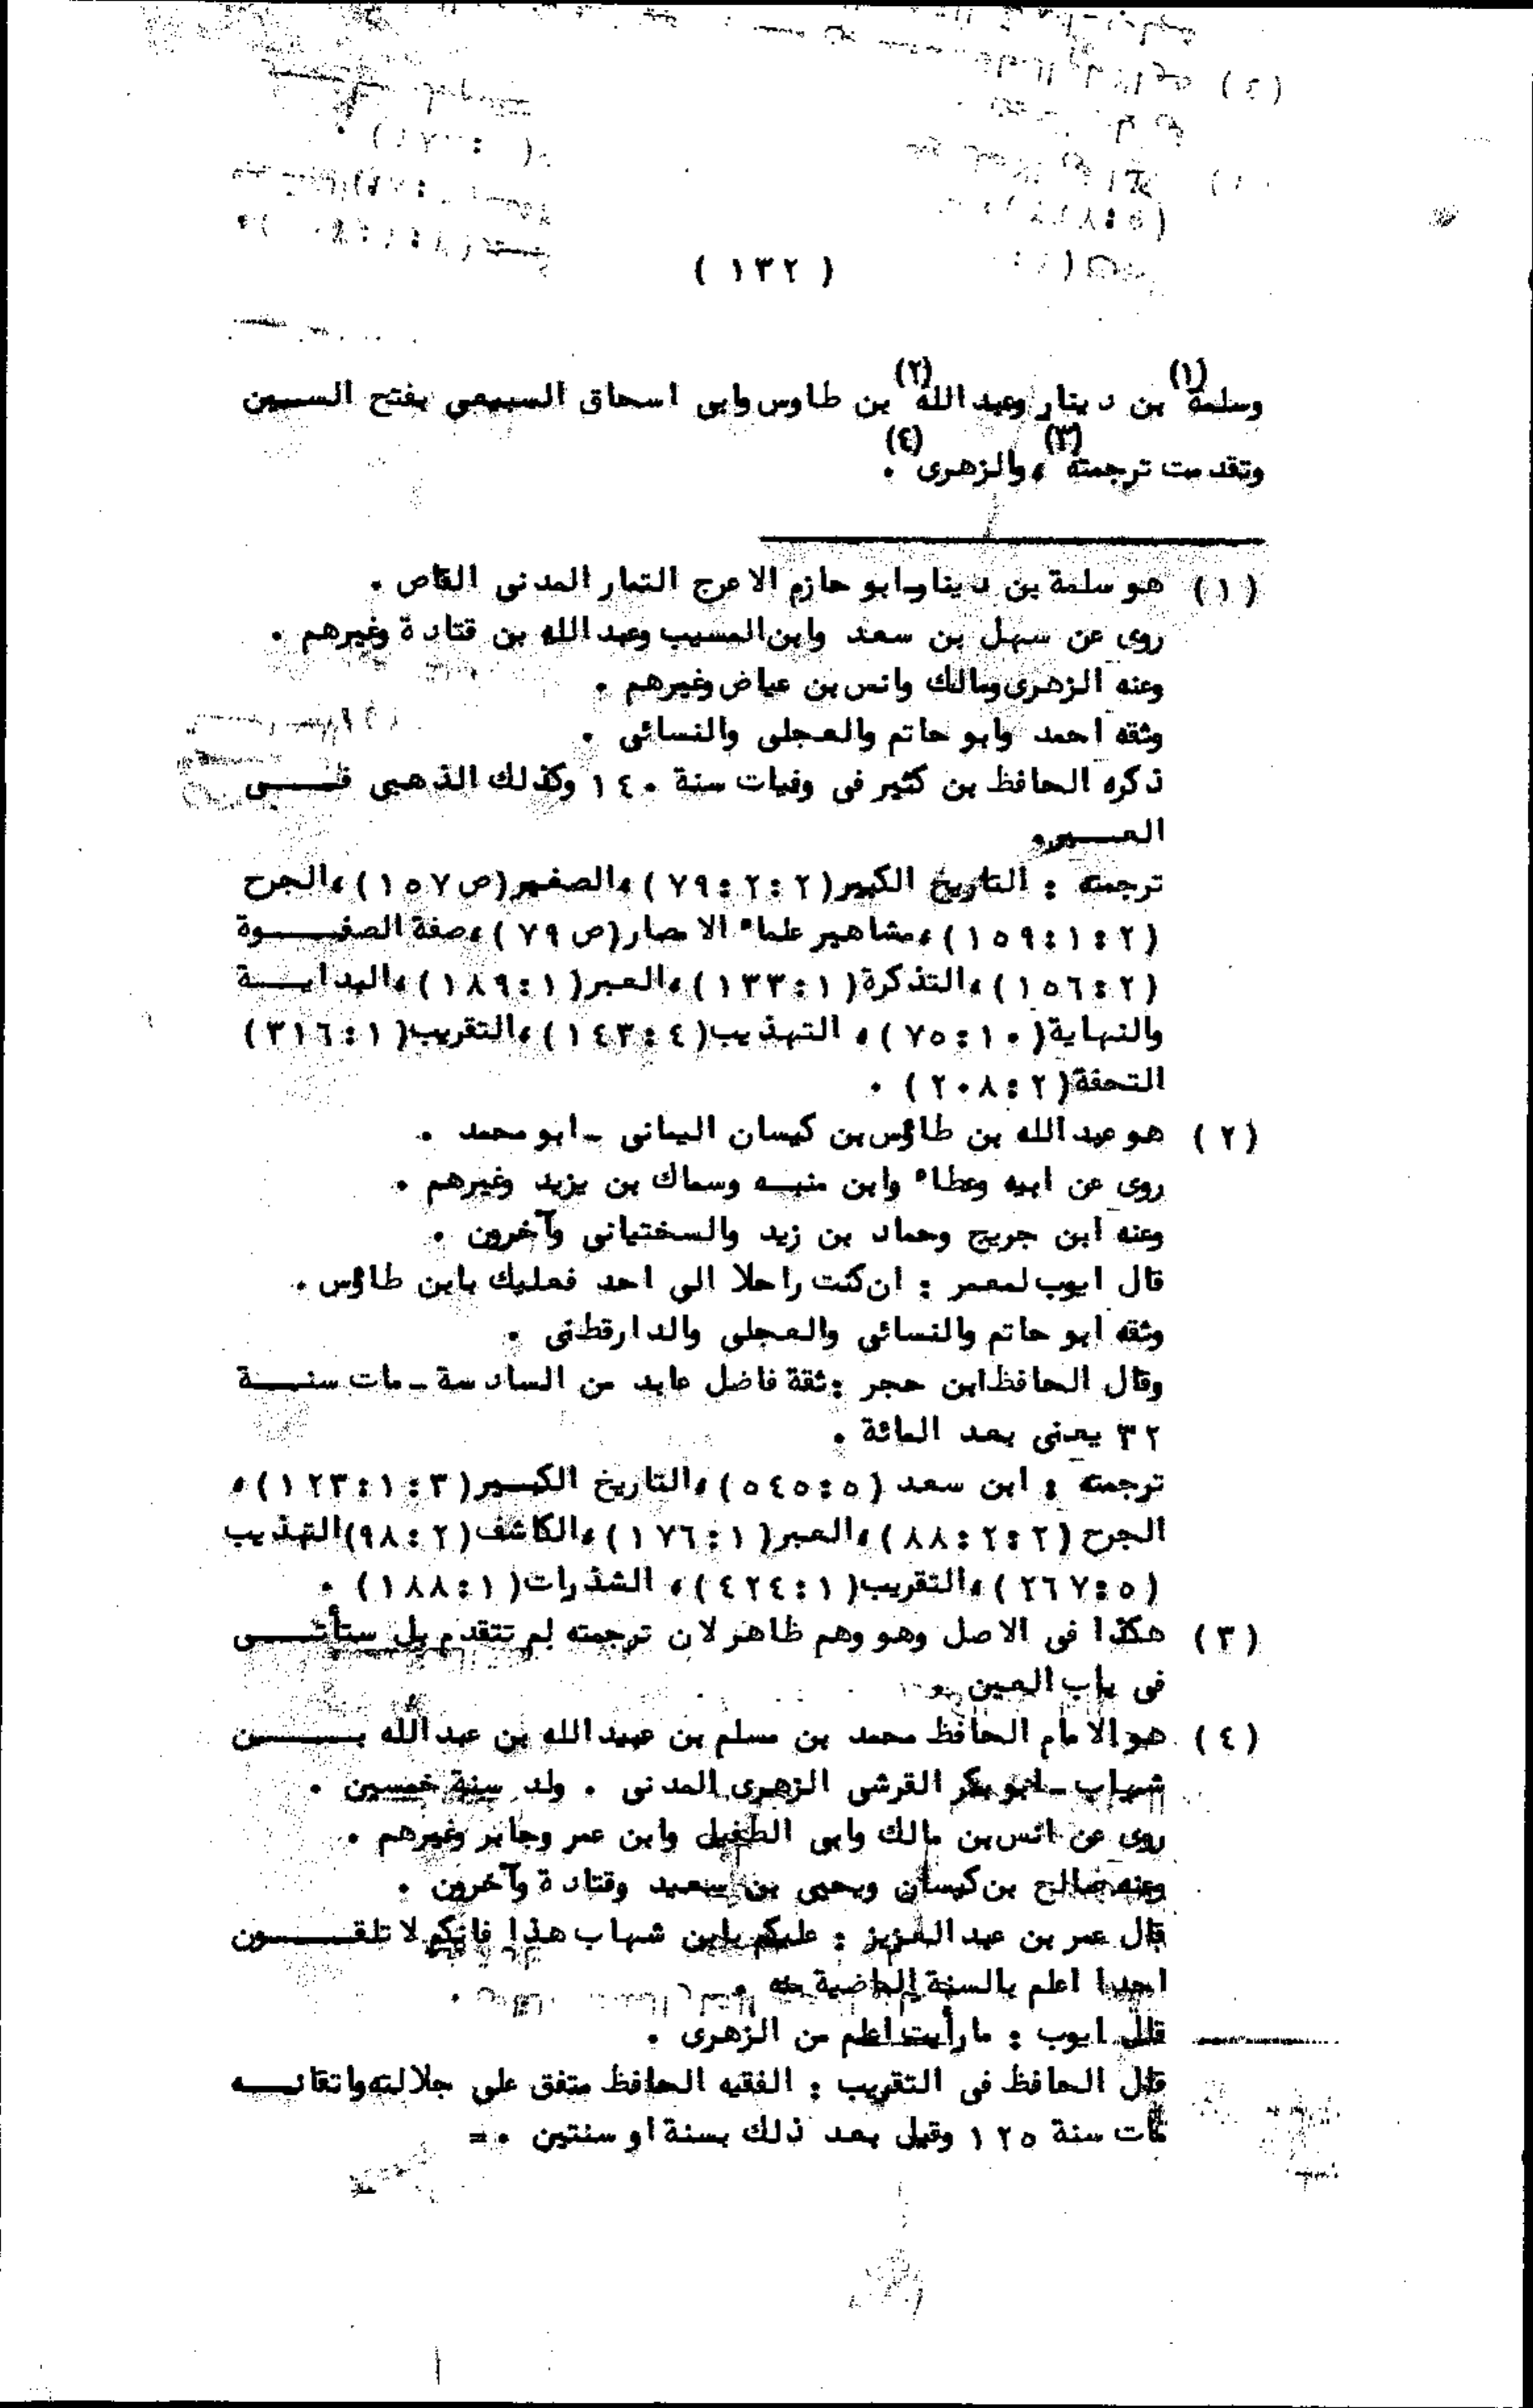 ( ١٣٢ )
وسلمة(١) بن دينار وعبد الله(٢) بن طاوس وابى اسحاق السبيعى بفتح السين
وتقدمت ترجمته(٣) ، والزهرى(٤) .
(١) هو سلمة بن دينار ـ ابو حازم الاعرج التمار المدنى القاص .
روى عن سهل بن سعد وابن المسيب وعبد الله بن قتادة وغيرهم .
وعنه الزهرى ومالك وانس بن عياض وغيرهم .
وثقه احمد وابو حاتم والعجلى والنسائى .
ذكره الحافظ بن كثير فى وفيات سنة ١٤٠ وكذلك الذهبى فى
العبر .
ترجمته : التاريخ الكبير (٢:٢:٧٩) ، الصغير (ص ١٥٧) ، الجرح
(٢:١:١٥٩) ، مشاهير علماء الامصار (ص ٧٩) ، صفة الصفوة
(٢:١٥٦) ، التذكرة (١:١٣٣) ، العبر (١:١٨٩) ، البداية
والنهاية (١٠:٧٥) ، التهذيب (٤:١٤٣) ، التقريب (١:٣١٦)
التحفة (٢:٢٠٨) .
(٢) هو عبد الله بن طاؤس بن كيسان اليمانى ـ ابو محمد .
روى عن ابيه وعطاء وابن منبه وسماك بن يزيد وغيرهم .
وعنه ابن جريج وحماد بن زيد والسختيانى وآخرون .
قال ايوب لمعمر : ان كنت راحلا الى احد فعليك بابن طاؤس .
وثقه ابو حاتم والنسائى والعجلى والدارقطنى .
وقال الحافظ ابن حجر : ثقة فاضل عابد من السادسة ـ مات سنة
٣٢ يعنى بعد المائة .
ترجمته : ابن سعد (٥:٥٤٥) ، التاريخ الكبير (٣:١:١٢٣) ،
الجرح (٢:٢:٨٨) ، العبر (١:١٧٦) ، الكاشف (٢:٩٨) التهذيب
(٥:٢٦٧) ، التقريب (١:٤٢٤) ، الشذرات (١:١٨٨) .
(٣) هكذا فى الاصل وهو وهم ظاهر لان ترجمته لم تتقدم بل ستأتى
فى باب العين .
(٤) هو الامام الحافظ محمد بن مسلم بن عبيد الله بن عبد الله بن
شهاب ـ ابو بكر القرشى الزهرى المدنى . ولد سنة خمسين .
روى عن انس بن مالك وابى الطفيل وابن عمر وجابر وغيرهم .
وعنه صالح بن كيسان ويحيى بن سعيد وقتادة وآخرون .
قال عمر بن عبد العزيز : عليكم بابن شهاب هذا فانكم لا تلقون
احدا اعلم بالسنة الماضية منه .
قال ايوب : ما رأيت اعلم من الزهرى .
قال الحافظ فى التقريب : الفقيه الحافظ متفق على جلالته واتقانه
مات سنة ١٢٥ وقيل بعد ذلك بسنة او سنتين . =